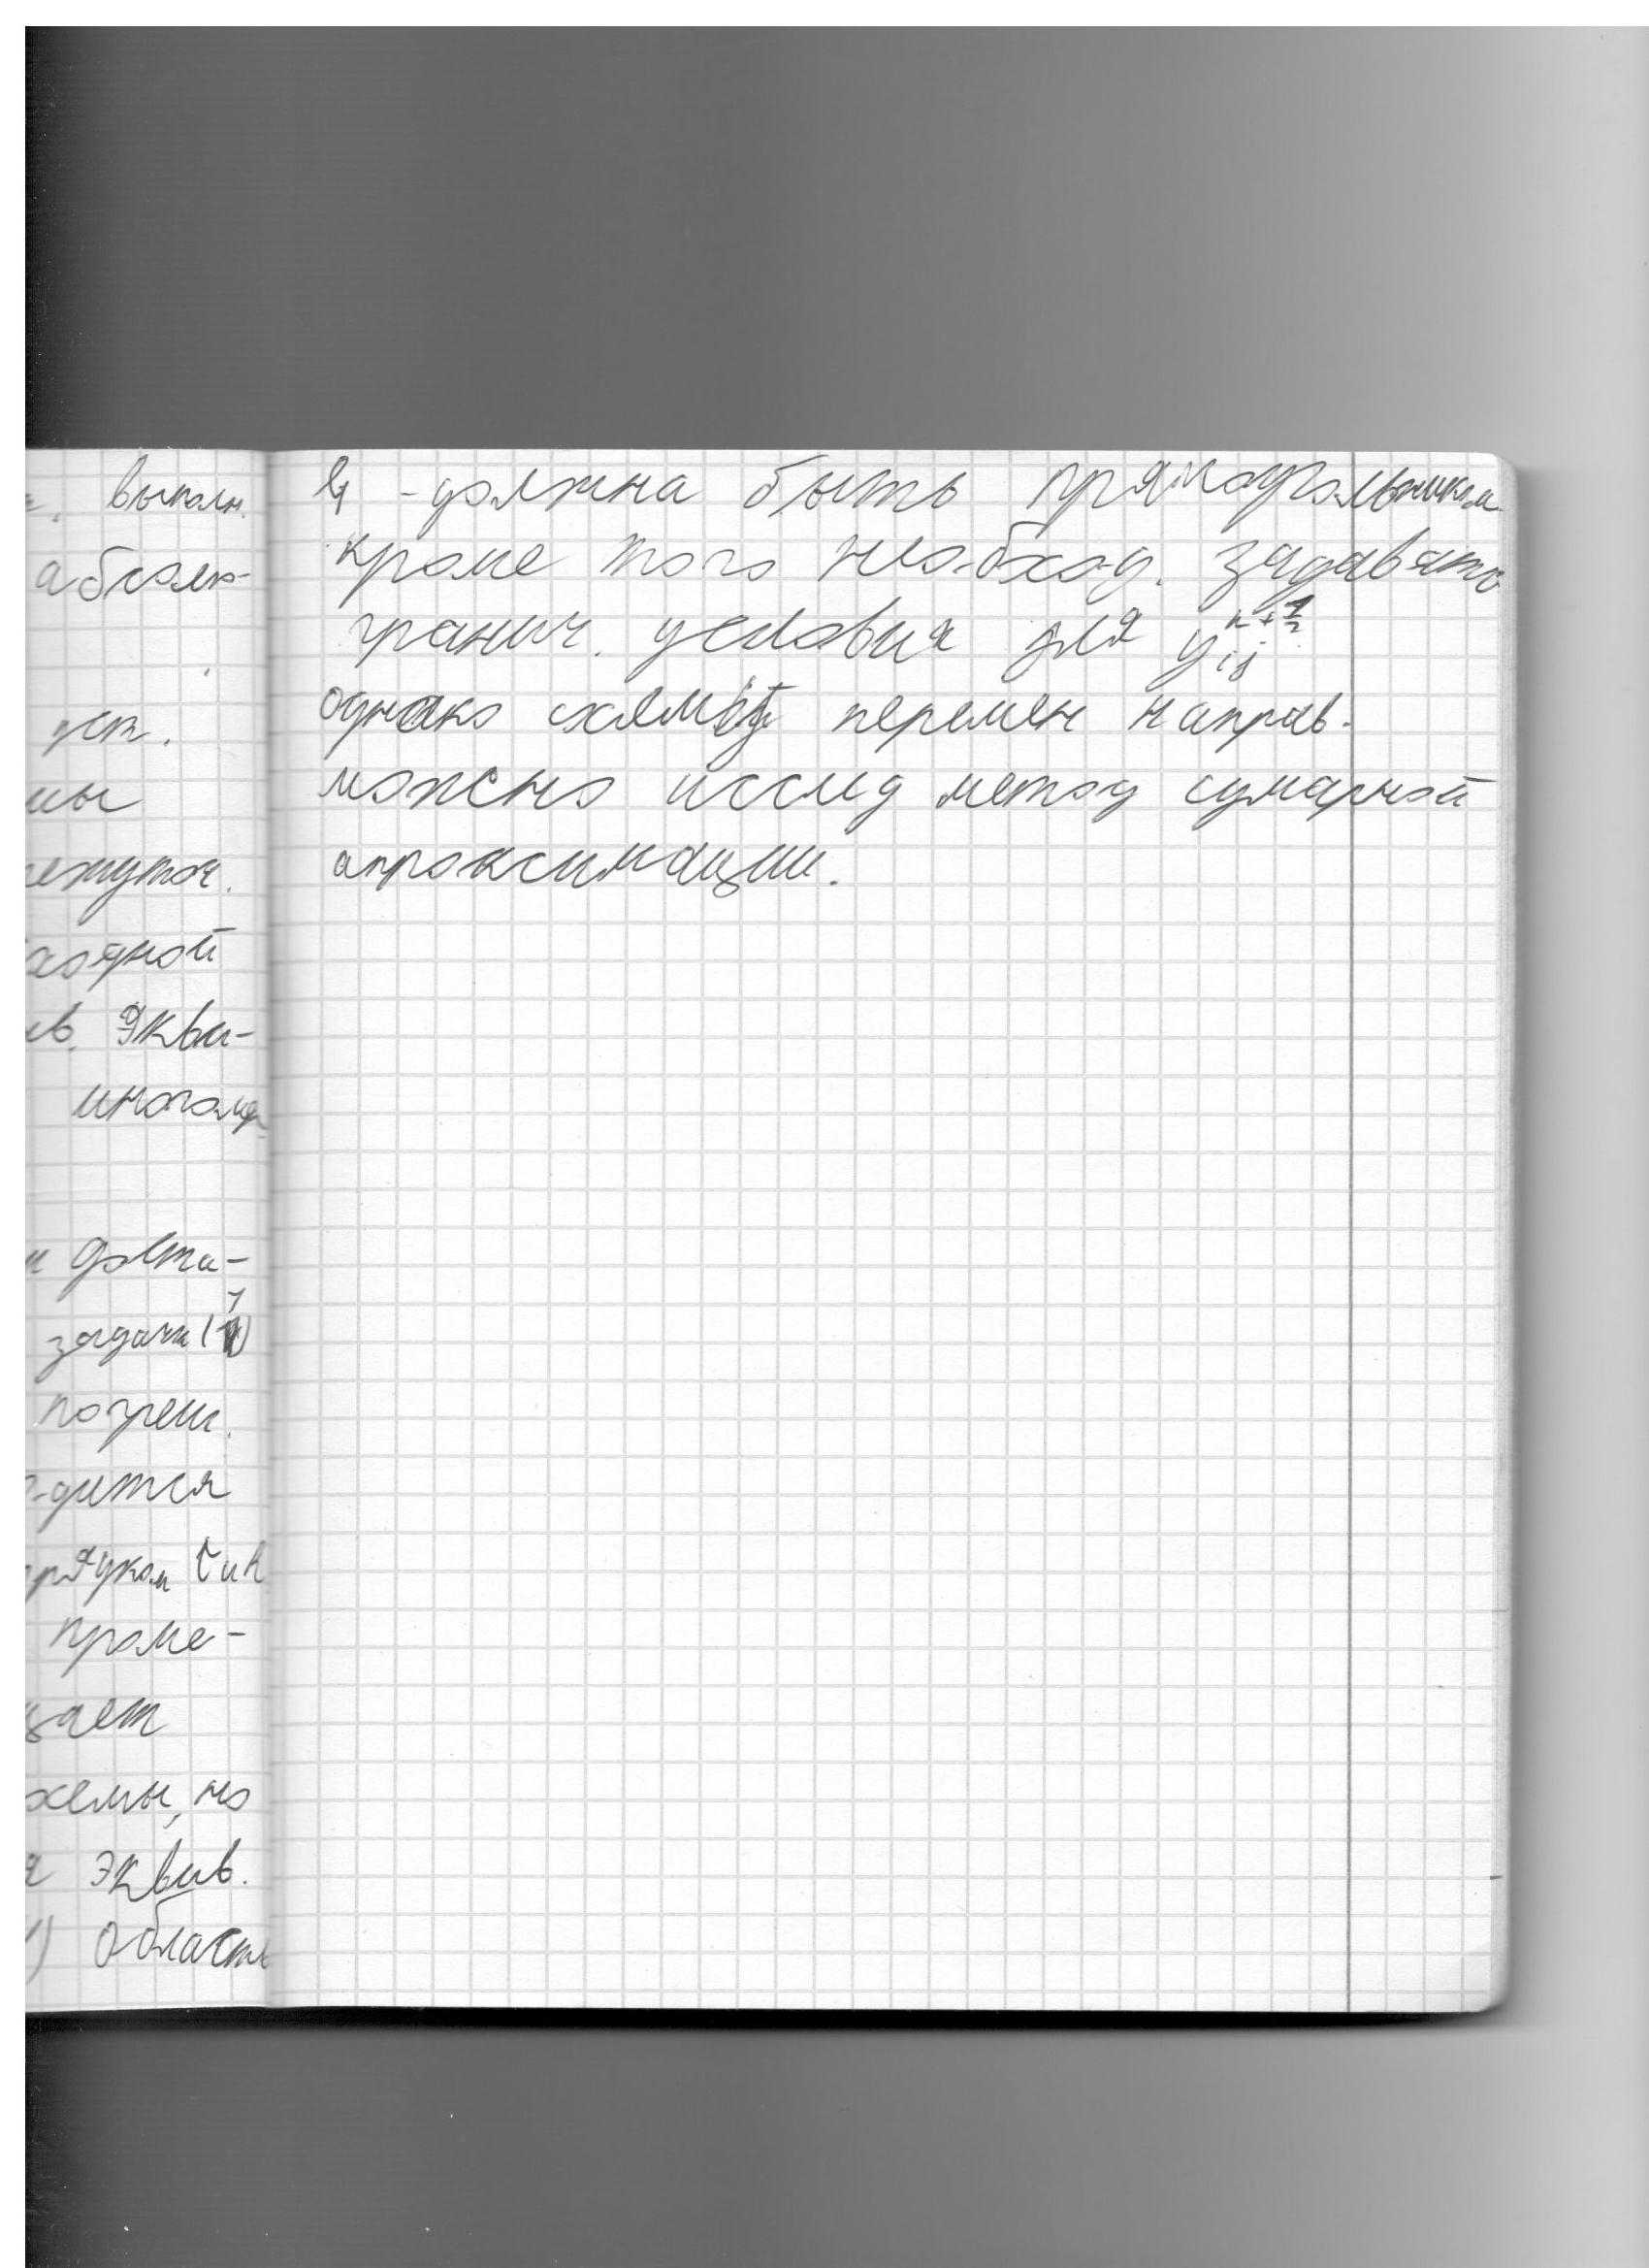 выполн.
абсолю-
уст.
мы
ежуточ.
ходной
ив. Экви-
многомер
доста-
задачи (1)
погреш.
дится
порядком τ и h
проме-
ает
хемы, но
эквив.
1) область
G - должна быть прямоугольником.
кроме того необход. задавать
гранич. условия для y_{ij}^{n+1/2}
однако схемы перемен направ.
можно исслед метод сумарной
апроксимации.